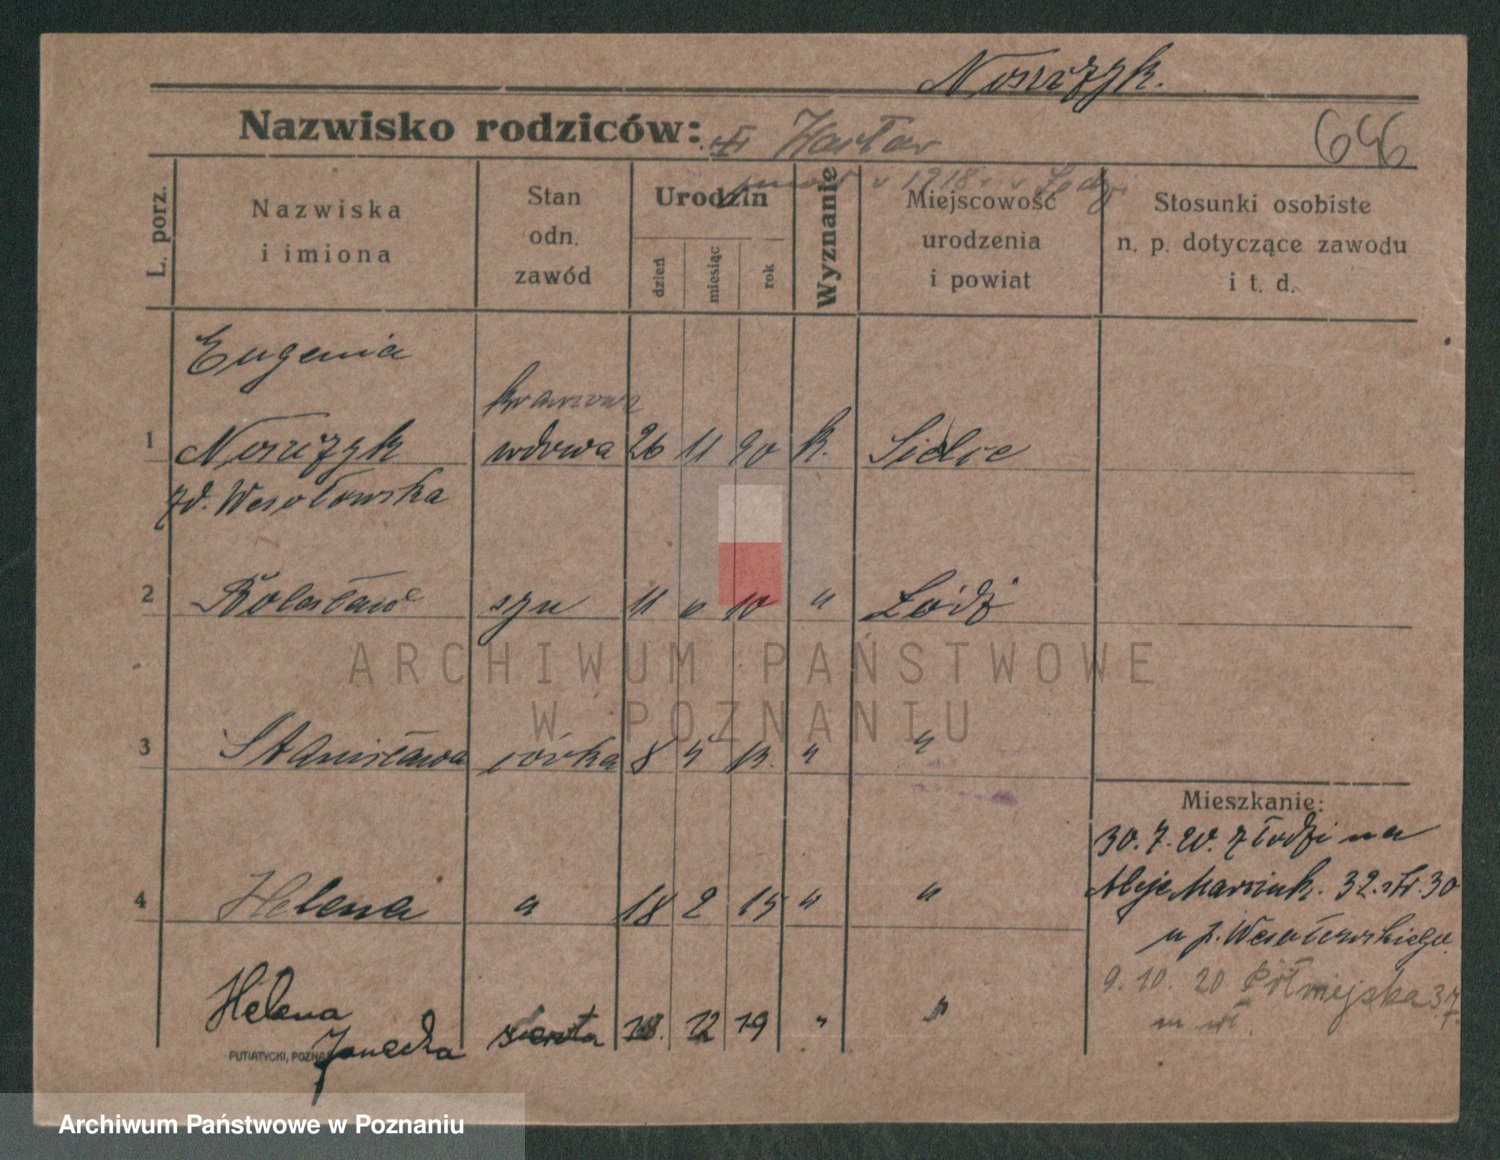 Nowczyk.
Nazwisko rodziców:
646
L. porz.
Nazwiska
i imiona
Stan
odn.
zawód
Urodzin
dzień
miesiąc
rok
Wyznanie
Miejscowość
urodzenia
i powiat
Stosunki osobiste
n. p. dotyczące zawodu
i t. d.
Eugenia
krawcowa
1 Nowczyk wdowa 26 11 90 k.
zd. Wesołowska
2 Bolesław syn 11 6 10 " Łódź
ARCHIWUM PAŃSTWOWE
W POZNANIU
3 Stanisława córka 8 5 13. " "
Mieszkanie:
30. 7. 20. z Łodzi na
Aleje Marcink. 32. 30
4 Helena " 18 2 15 " "
u p. Wesołowskiego
9. 10. 20 Półwiejska 37
Helena
Janeczka sierota 18. 12 19 " "
PUTIATYCKI, POZNAŃ
Archiwum Państwowe w Poznaniu